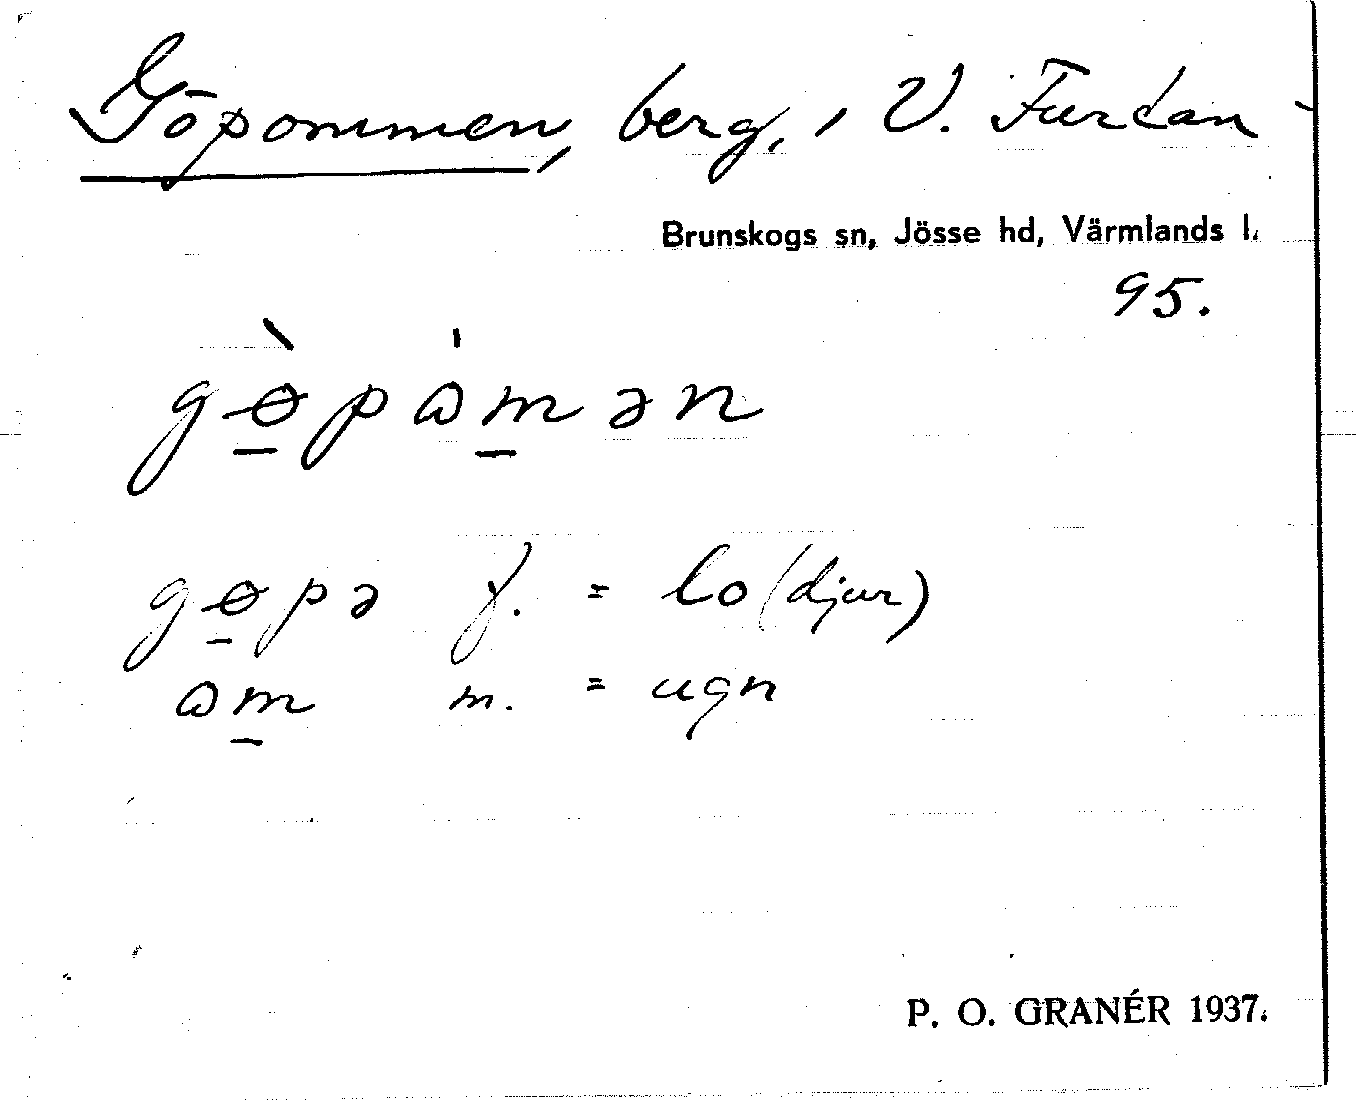 Göpommen, berg, i V. Furtan
Brunskogs sn, Jösse hd, Värmlands l.
95.
gø̱̀pɷ̀m̱ən
gø̱pə f. = lo (djur)
ɷm̱ m. = ugn
P. O. GRANÉR 1937.